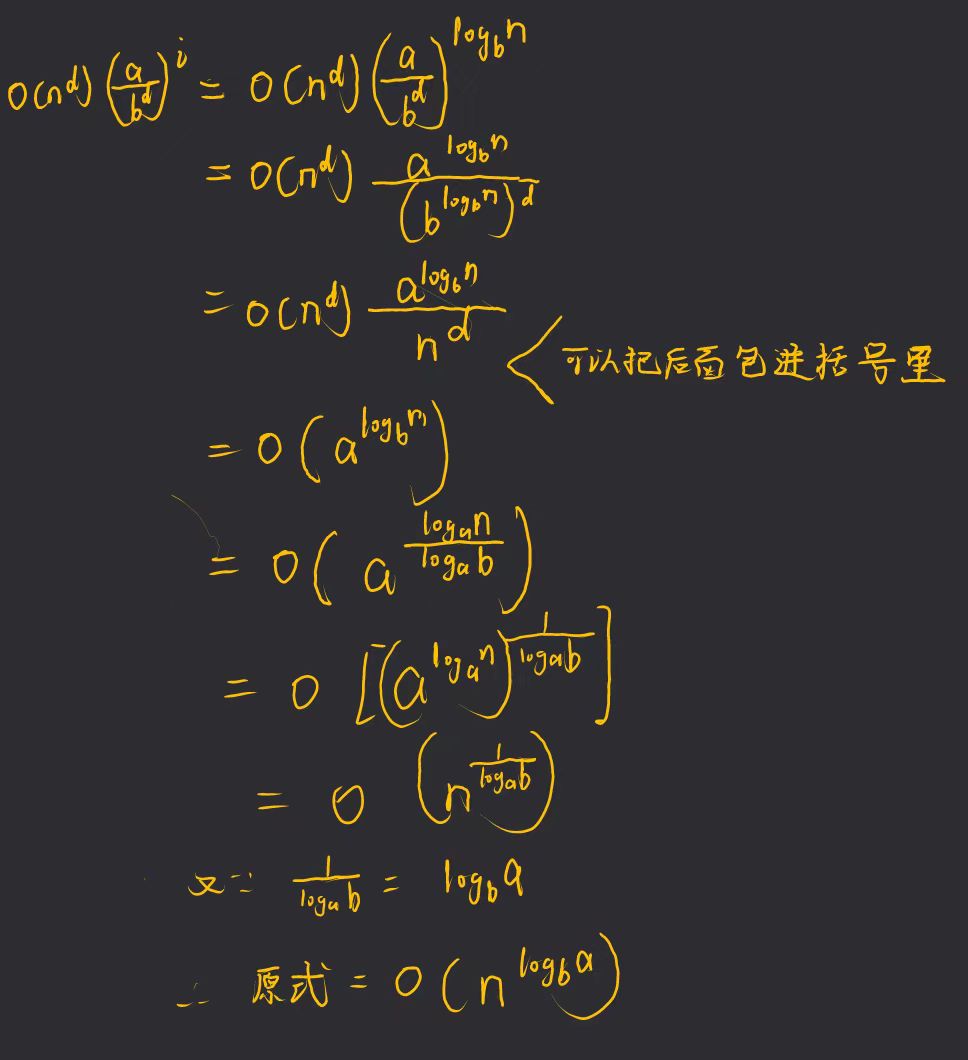 O(n^d) (a/b^d)^i = O(n^d) (a/b^d)^{log_b n}
= O(n^d) a^{log_b n}/(b^{log_b n})^d
= O(n^d) a^{log_b n}/n^d
可以把后面包进括号里
= O(a^{log_b n})
= O(a^{log_a n/log_a b})
= O[(a^{log_a n})^{1/log_a b}]
= O(n^{1/log_a b})
又∵ 1/log_a b = log_b a
∴ 原式 = O(n^{log_b a})